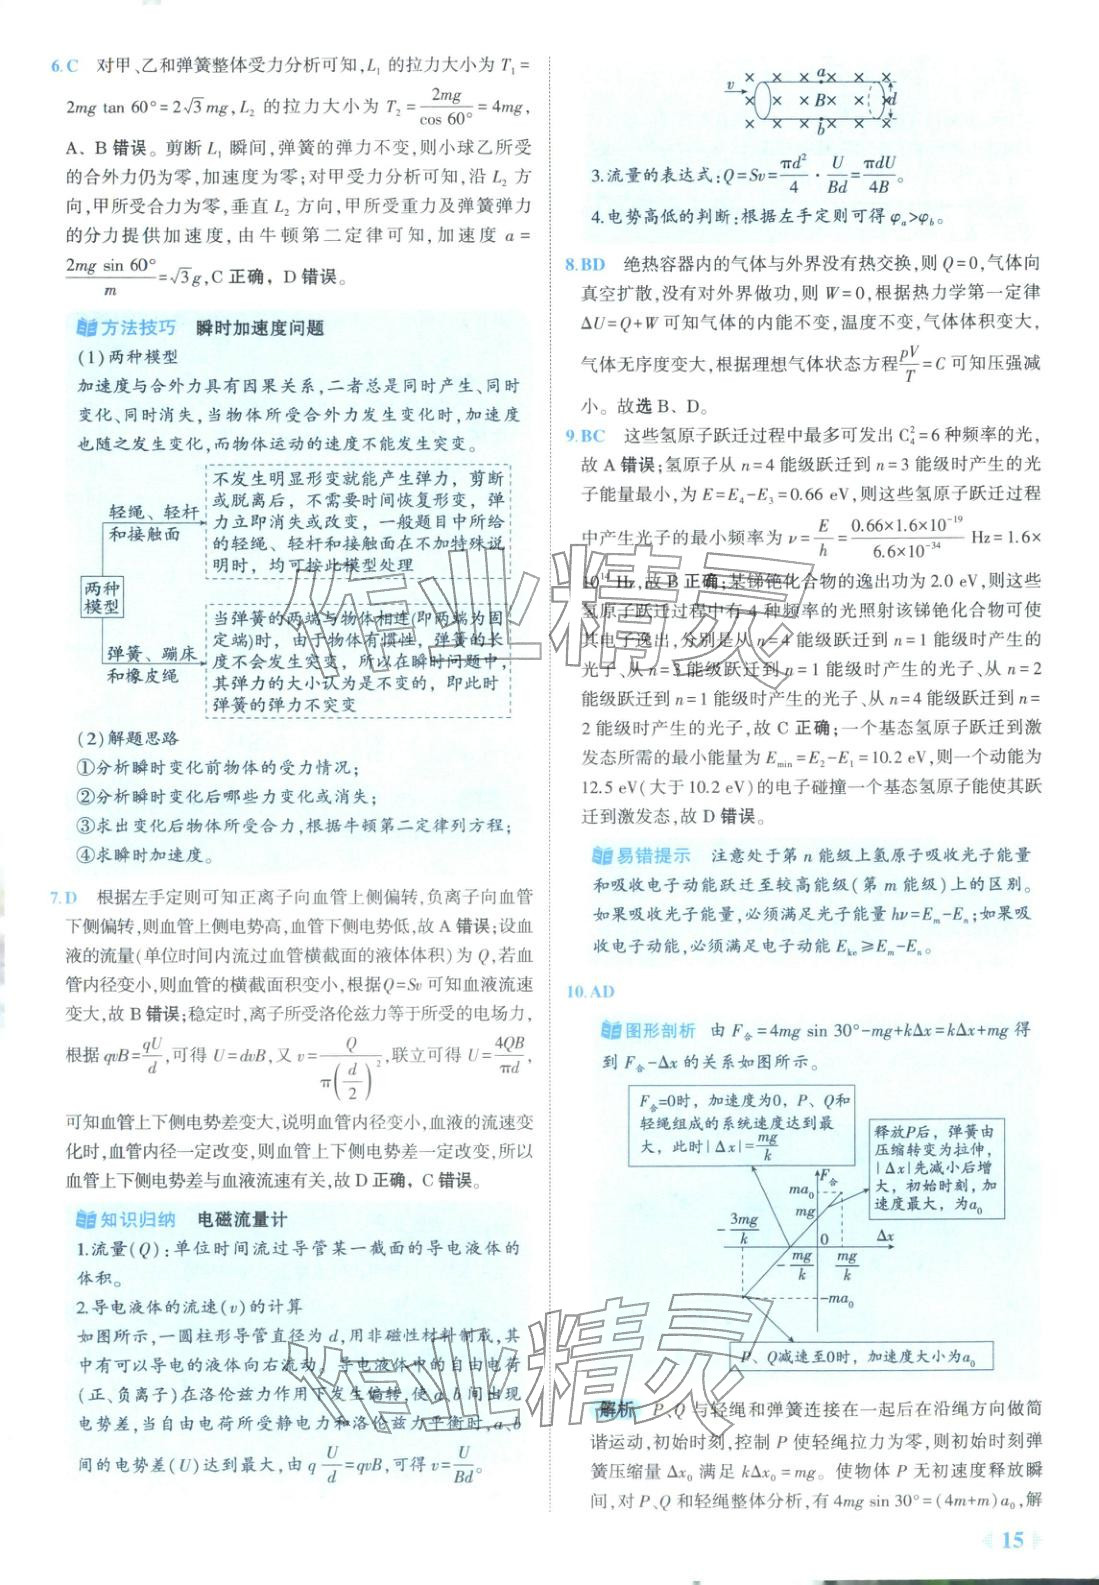 6.C 对甲、乙和弹簧整体受力分析可知,L₁ 的拉力大小为 T₁=
2mg tan 60°=2√3mg,L₂ 的拉力大小为 T₂=2mg/cos 60°=4mg,
A、B 错误。剪断 L₁ 瞬间,弹簧的弹力不变,则小球乙所受
的合外力仍为零,加速度为零;对甲受力分析可知,沿 L₂ 方
向,甲所受合力为零,垂直 L₂ 方向,甲所受重力及弹簧弹力
的分力提供加速度,由牛顿第二定律可知,加速度 a=
2mg sin 60°/m=√3g,C 正确,D 错误。
方法技巧 瞬时加速度问题
(1)两种模型
加速度与合外力具有因果关系,二者总是同时产生、同时
变化、同时消失,当物体所受合外力发生变化时,加速度
也随之发生变化,而物体运动的速度不能发生突变。
两种
模型
轻绳、轻杆
和接触面
不发生明显形变就能产生弹力,剪断
或脱离后,不需要时间恢复形变,弹
力立即消失或改变,一般题目中所给
的轻绳、轻杆和接触面在不加特殊说
明时,均可按此模型处理
弹簧、蹦床
和橡皮绳
当弹簧的两端与物体相连(即两端为固
定端)时,由于物体有惯性,弹簧的长
度不会发生突变,所以在瞬时问题中,
其弹力的大小认为是不变的,即此时
弹簧的弹力不突变
(2)解题思路
①分析瞬时变化前物体的受力情况;
②分析瞬时变化后哪些力变化或消失;
③求出变化后物体所受合力,根据牛顿第二定律列方程;
④求瞬时加速度。
7.D 根据左手定则可知正离子向血管上侧偏转,负离子向血管
下侧偏转,则血管上侧电势高,血管下侧电势低,故 A 错误;设血
液的流量(单位时间内流过血管横截面的液体体积)为 Q,若血
管内径变小,则血管的横截面积变小,根据Q=Sv 可知血液流速
变大,故 B 错误;稳定时,离子所受洛伦兹力等于所受的电场力,
根据 qvB=qU/d,可得 U=dvB,又 v=Q/π(d/2)²,联立可得 U=4QB/πd,
可知血管上下侧电势差变大,说明血管内径变小,血液的流速变
化时,血管内径一定改变,则血管上下侧电势差一定改变,所以
血管上下侧电势差与血液流速有关,故 D 正确,C 错误。
知识归纳 电磁流量计
1.流量(Q):单位时间流过导管某一截面的导电液体的
体积。
2.导电液体的流速(v)的计算
如图所示,一圆柱形导管直径为 d,用非磁性材料制成,其
中有可以导电的液体向右流动。导电液体中的自由电荷
(正、负离子)在洛伦兹力作用下发生偏转,使 a、b 间出现
电势差,当自由电荷所受静电力和洛伦兹力平衡时,a、b
间的电势差(U)达到最大,由 q U/d=qvB,可得 v=U/Bd。
v a B b d
3.流量的表达式:Q=Sv=πd²/4·U/Bd=πdU/4B。
4.电势高低的判断:根据左手定则可得 φₐ>φ_b。
8.BD 绝热容器内的气体与外界没有热交换,则 Q=0,气体向
真空扩散,没有对外界做功,则 W=0,根据热力学第一定律
ΔU=Q+W 可知气体的内能不变,温度不变,气体体积变大,
气体无序度变大,根据理想气体状态方程pV/T=C 可知压强减
小。故选 B、D。
9.BC 这些氢原子跃迁过程中最多可发出 C₄²=6 种频率的光,
故 A 错误;氢原子从 n=4 能级跃迁到 n=3 能级时产生的光
子能量最小,为 E=E₄-E₃=0.66 eV,则这些氢原子跃迁过程
中产生光子的最小频率为 ν=E/h=0.66×1.6×10⁻¹⁹/6.6×10⁻³⁴ Hz=1.6×
10¹⁴ Hz,故 B 正确;某锑铯化合物的逸出功为 2.0 eV,则这些
氢原子跃迁过程中有 4 种频率的光照射该锑铯化合物可使
其电子逸出,分别是从 n=4 能级跃迁到 n=1 能级时产生的
光子、从 n=3 能级跃迁到 n=1 能级时产生的光子、从 n=2
能级跃迁到 n=1 能级时产生的光子、从 n=4 能级跃迁到 n=
2 能级时产生的光子,故 C 正确;一个基态氢原子跃迁到激
发态所需的最小能量为 Eₘᵢₙ=E₂-E₁=10.2 eV,则一个动能为
12.5 eV(大于 10.2 eV)的电子碰撞一个基态氢原子能使其跃
迁到激发态,故 D 错误。
易错提示 注意处于第 n 能级上氢原子吸收光子能量
和吸收电子动能跃迁至较高能级(第 m 能级)上的区别。
如果吸收光子能量,必须满足光子能量 hν=Eₘ-Eₙ;如果吸
收电子动能,必须满足电子动能 Eₖₑ≥Eₘ-Eₙ。
10.AD
图形剖析 由 F合=4mg sin 30°-mg+kΔx=kΔx+mg 得
到 F合-Δx 的关系如图所示。
F合=0时,加速度为0,P、Q和
轻绳组成的系统速度达到最
大,此时|Δx|=mg/k
释放P后,弹簧由
压缩转变为拉伸,
|Δx|先减小后增
大,初始时刻,加
速度最大,为a₀
F合
ma₀
mg
-3mg/k
-mg/k
0
mg/k
Δx
-ma₀
P、Q减速至0时,加速度大小为a₀
解析 P、Q 与轻绳和弹簧连接在一起后在沿绳方向做简
谐运动,初始时刻,控制 P 使轻绳拉力为零,则初始时刻弹
簧压缩量 Δx₀ 满足 kΔx₀=mg。使物体 P 无初速度释放瞬
间,对 P、Q 和轻绳整体分析,有 4mg sin 30°=(4m+m)a₀,解
15
作业精灵
作业精灵